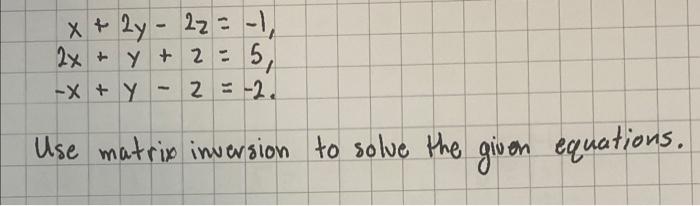 x + 2y - 2z = -1,
2x + y + z = 5,
-x + y - z = -2.
Use matrix inversion to solve the given equations.